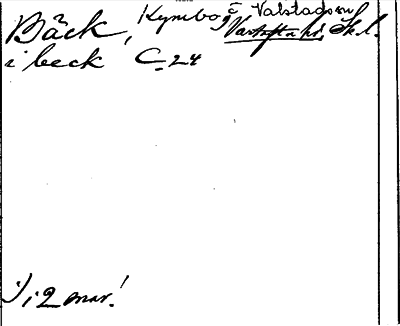 Bäck, Kymbo g Valstads sn
Vartofta hd, Sk.l.
i beck C 24
i 2 mar!